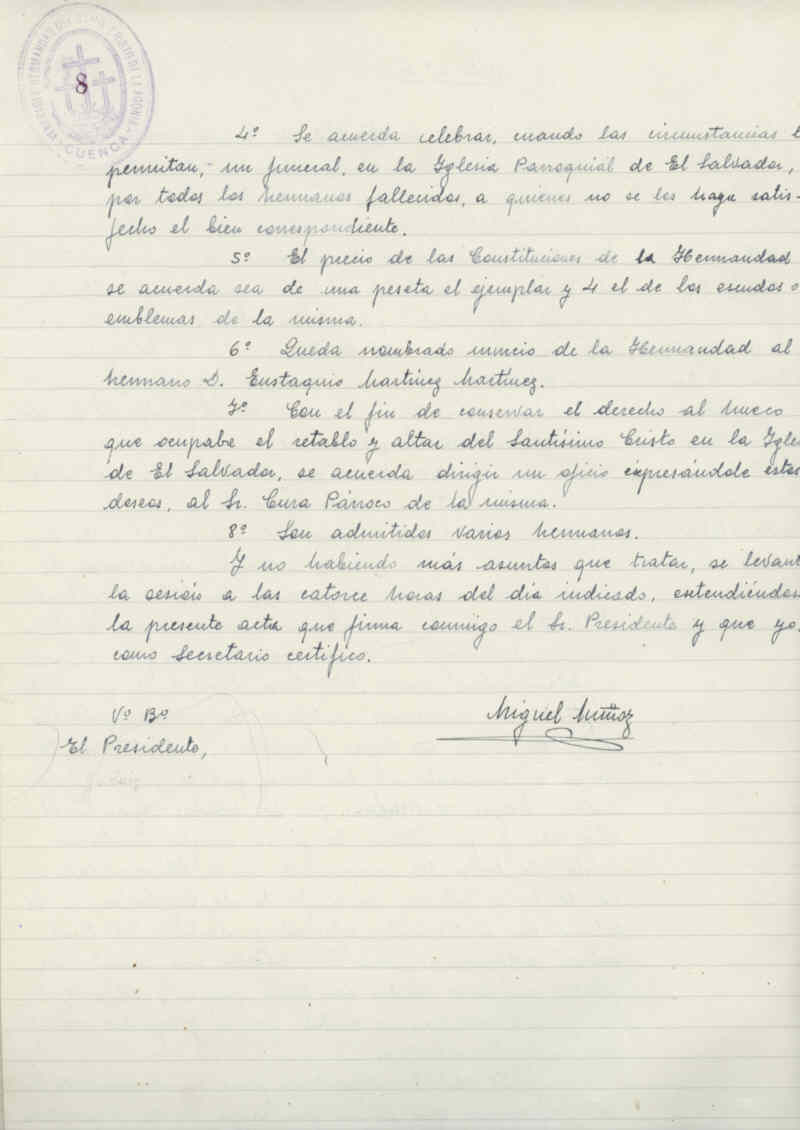 8
4º Se acuerda celebrar, cuando las circunstancias l
permitan, un funeral, en la Iglesia Parroquial de El Salvador,
por todos los hermanos fallecidos, a quienes no se les haya satis-
fecho el bien correspondiente.
5º El precio de las Constituciones de la Hermandad
se acuerda sea de una peseta el ejemplar y 4 el de los escudos o
emblemas de la misma.
6º Queda nombrado nuncio de la Hermandad al
hermano D. Eustaquio Martínez Martínez.
7º Con el fin de conservar el derecho al hueco
que ocupaba el retablo y altar del Santísimo Cristo en la Igle
de El Salvador, se acuerda dirigir un oficio expresándole estos
deseos, al Sr. Cura Párroco de la misma.
8º Son admitidos varios hermanos.
Y no habiendo más asuntos que tratar, se levant
la sesión a las catorce horas del día indicado, extendiéndos
la presente acta que firma conmigo el Sr. Presidente y que yo,
como Secretario certifico.
Vº Bº
Miguel Muñoz
El Presidente,
HERMANDAD DEL CRISTO DE LA AGONIA
CUENCA